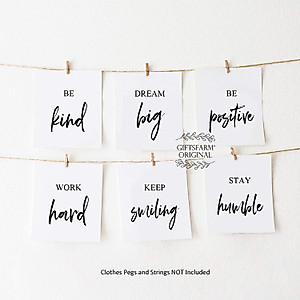 BE
kind
DREAM
big
BE
positive
GIFTSFARM®
ORIGINAL
WORK
hard
KEEP
smiling
STAY
humble
Clothes Pegs and Strings NOT Included